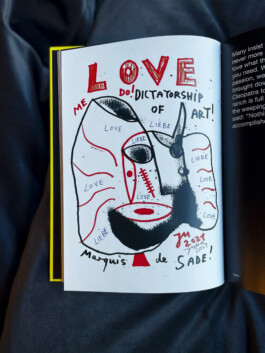 LOVE
ME
DO! DICTATORSHIP
OF ART!
LIEBE
LOVE
LIEBE
LIEBE
LOVE
LOVE
LOVE
LOVE
LIEBE
JM 2021
Marquis de SADE!
Many insist
never more
love what th
you need. W
passion, we
brought dow
Cleopatra to
ranch is full
the weeping
said: "Nothi
accomplishe